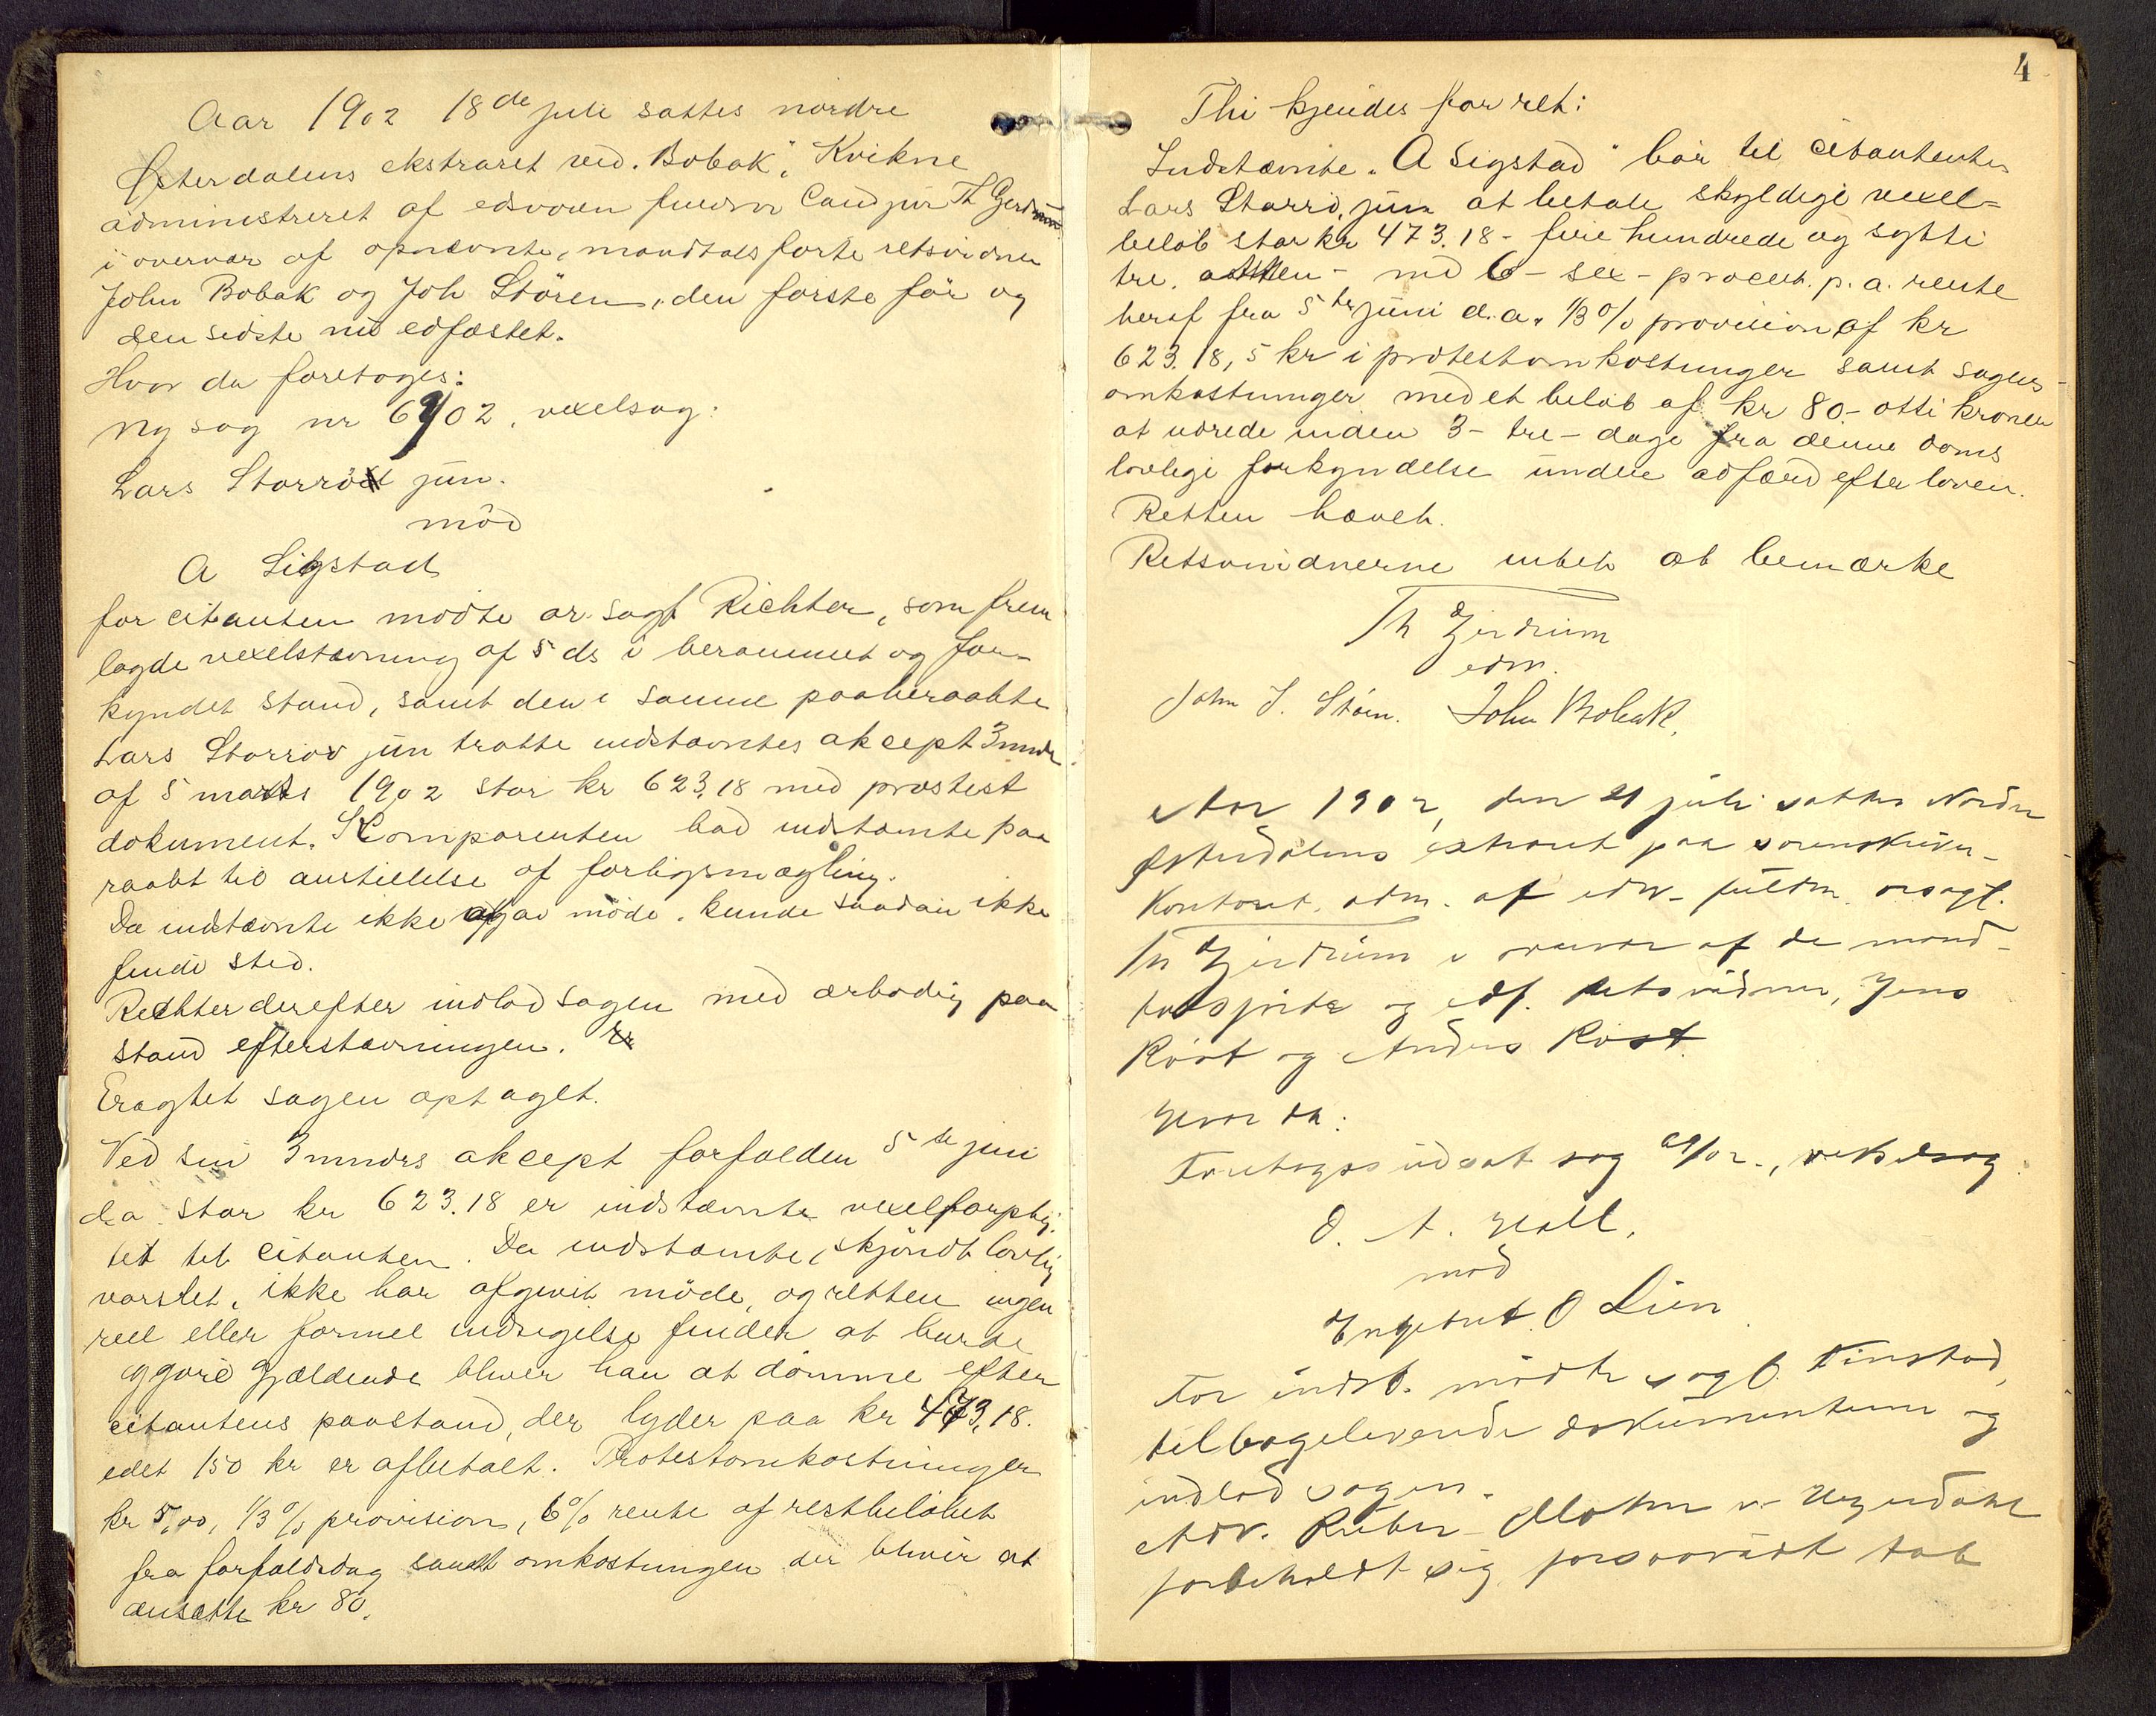 Aar 1902 18de juli sattes nordre
Østerdalens ekstraret ved "Bobak", Kvikne
administreret af edsvoren fuldm Cand jur Th Gjerdrum
i overvær af opnævnte, mandtalsførte retsvidner
John Bobak og Joh Stören, den første før og
den sidste nu edfæstet.
Hvor da foretoges:
Ny sag nr 69/02, vexelsag:
Lars Storrö jun.
mod
A Sigstad
for citanten mødte or. sagf Richter, som frem
lagde vexelstævning af 5 ds i berammet og for-
kyndet stand, samt den i samme paaberaabte
Lars Storrøs jun tratte indstævntes akcept 3 mndr
af 5 marts 1902 stor kr 623,18 med protest
dokument. Komparenten bad indstævnte paa
raabt til anstillelse af forligsmægling.
Da indstævnte ikke afgav møde, kunde saadan ikke
finde sted.
Richter derefter indlod sagen med ærbødig paa
stand efter stævningen.
Eragtet sagen optaget.
Ved sin 3 mndrs akcept forfalden 5te juni
d.a. stor kr 623.18 er indstævnte vexelforplig
tet til citanten. Da indstævnte, skjöndt lovlig
varslet, ikke har afgivet möde, og retten ingen
reel eller formel indsigelse finder at burde
gjøre gjældende bliver han at dömme efter
citantens paastand, der lyder paa kr 473,18.
idet 150 kr er afbetalt. Protestomkostninger
kr 5,00, 1/3 % provision, 6% rente af restbeløbet
fra forfaldsdag samt omkostninger der bliver at
ansætte kr 80.
4
Thi kjendes for ret:
Indstævnte "A Sigstad" bør til citanten
Lars Storrö, jun at betale skyldige vexel-
beløb stor kr 473.18 - fire hundrede og sytti
tre, atten - med 6 - sex - procent. p. a. rente
heraf fra 5te juni d.a. 1/3 % provision af kr
623.18, 5 kr i protestomkostninger samt sagens
omkostninger med et beløb af kr 80.- otti kroner
at udrede inden 3 - tre - dage fra denne doms
lovlige forkyndelse under adfærd efter loven.
Retten hævet.
Retsvidnerne intet at bemærke
Th Gjerdrum
edsv.
John J. Stören. John Bobak.
Aar 1902, den 21 juli sattes Nordre
Østerdalens extraret paa sorenskriver-
kontoret, adm. af edsv. fuldm. orsagf.
Th Gjerdrum i overvær af de mand-
talsførte og edf. retsvidner, Jens
Röst og Anders Röst.
Hvor da:
Foretoges udsat sag 29/02., vekselsag
O. A. Hall.
mod
Engebret O Lien
For indst. mødte sagf. Finstad,
tilbageleverede dokumenterne og
indlod sagen.
Adv. Richter-
forbeholdt sig forsaavidt